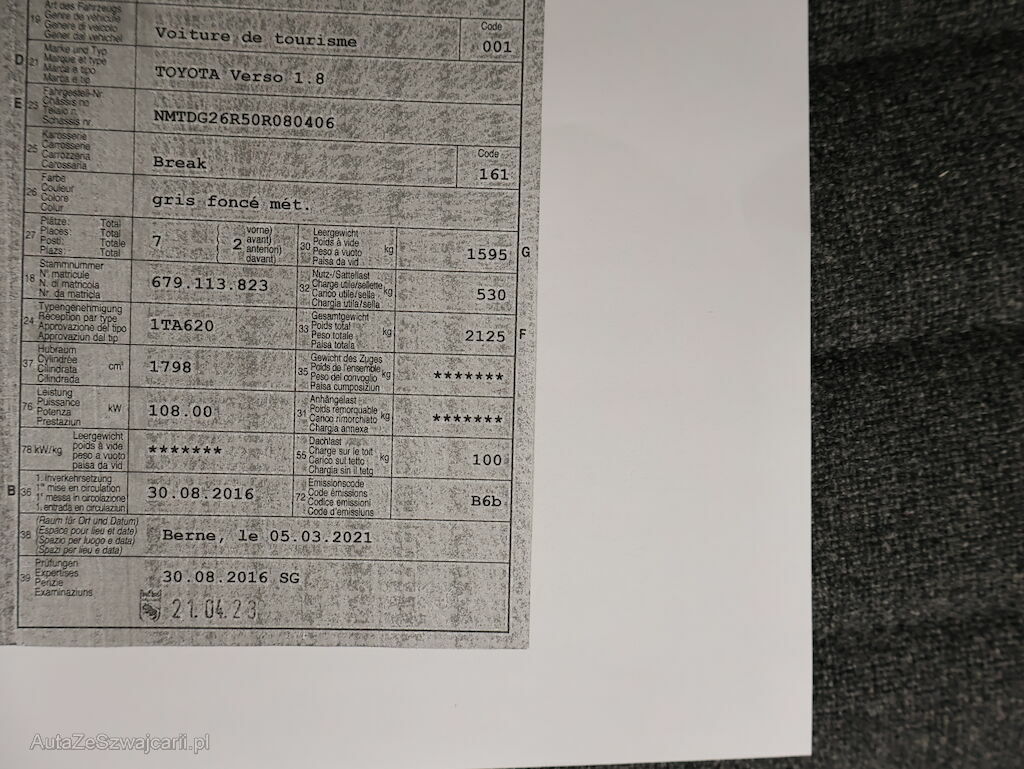 Art des Fahrzeugs
19 Genre de véhicule
Genere di veicolo
Gener dal vehichel
Voiture de tourisme
Code
001
D 21 Marke und Typ
Marque et type
Marca e tipo
Marca e tip
TOYOTA Verso 1.8
E 23 Fahrgestell-Nr.
Châssis no
Telaio n.
Schassis nr.
NMTDG26R50R080406
25 Karosserie
Carrosserie
Carrozzeria
Carossaria
Break
Code
161
26 Farbe
Couleur
Colore
Colur
gris foncé mét.
27 Plätze: Total
Places: Total
Posti: Totale
Plazs: Total
7
2
vorne)
avant)
anteriori)
davant)
30 Leergewicht
Poids à vide
Peso a vuoto
Paisa da vid
kg
1595 G
18 Stammnummer
N° matricule
N. di matricola
Nr. da matricla
679.113.823
32 Nutz-/Sattellast
Charge utile/sellette
Carico utile/sella
Chargia utila/sella
kg
530
24 Typengenehmigung
Réception par type
Approvazione del tipo
Approvaziun dal tip
1TA620
33 Gesamtgewicht
Poids total
Peso totale
Paisa totala
kg
2125 F
37 Hubraum
Cylindrée
Cilindrata
Cilindrada
cm³
1798
35 Gewicht des Zuges
Poids de l'ensemble
Peso del convoglio
Paisa cumposiziun
kg
*******
76 Leistung
Puissance
Potenza
Prestaziun
kW
108.00
31 Anhängelast
Poids remorquable
Carico rimorchiato
Chargia annexa
kg
*******
78 kW/kg
Leergewicht
poids à vide
peso a vuoto
paisa da vid
*******
55 Dachlast
Charge sur le toit
Carico sul tetto
Chargia sin il tetg
kg
100
B 36 1. Inverkehrsetzung
1re mise en circulation
1a messa in circolazione
1. entrada en circulaziun
30.08.2016
72 Emissionscode
Code émissions
Codice emissioni
Code d'emissiuns
B6b
38 (Raum für Ort und Datum)
(Espace pour lieu et date)
(Spazio per luogo e data)
(Spazi per lieu e data)
Berne, le 05.03.2021
39 Prüfungen
Expertises
Perizie
Examinaziuns
30.08.2016 SG
21.04.23
AutaZeSzwajcarii.pl